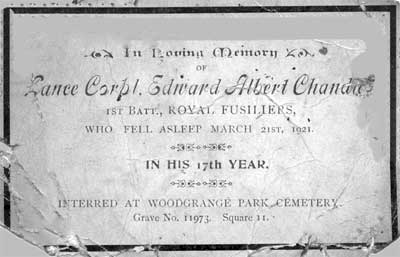 In Loving Memory
OF
Lance Corpl. Edward Albert
1ST BATT., ROYAL FUSILIERS,
WHO FELL ASLEEP MARCH 21ST, 1921.
IN HIS 17TH YEAR.
INTERRED AT WOODGRANGE PARK CEMETERY.
Grave No. 11973. Square 11.